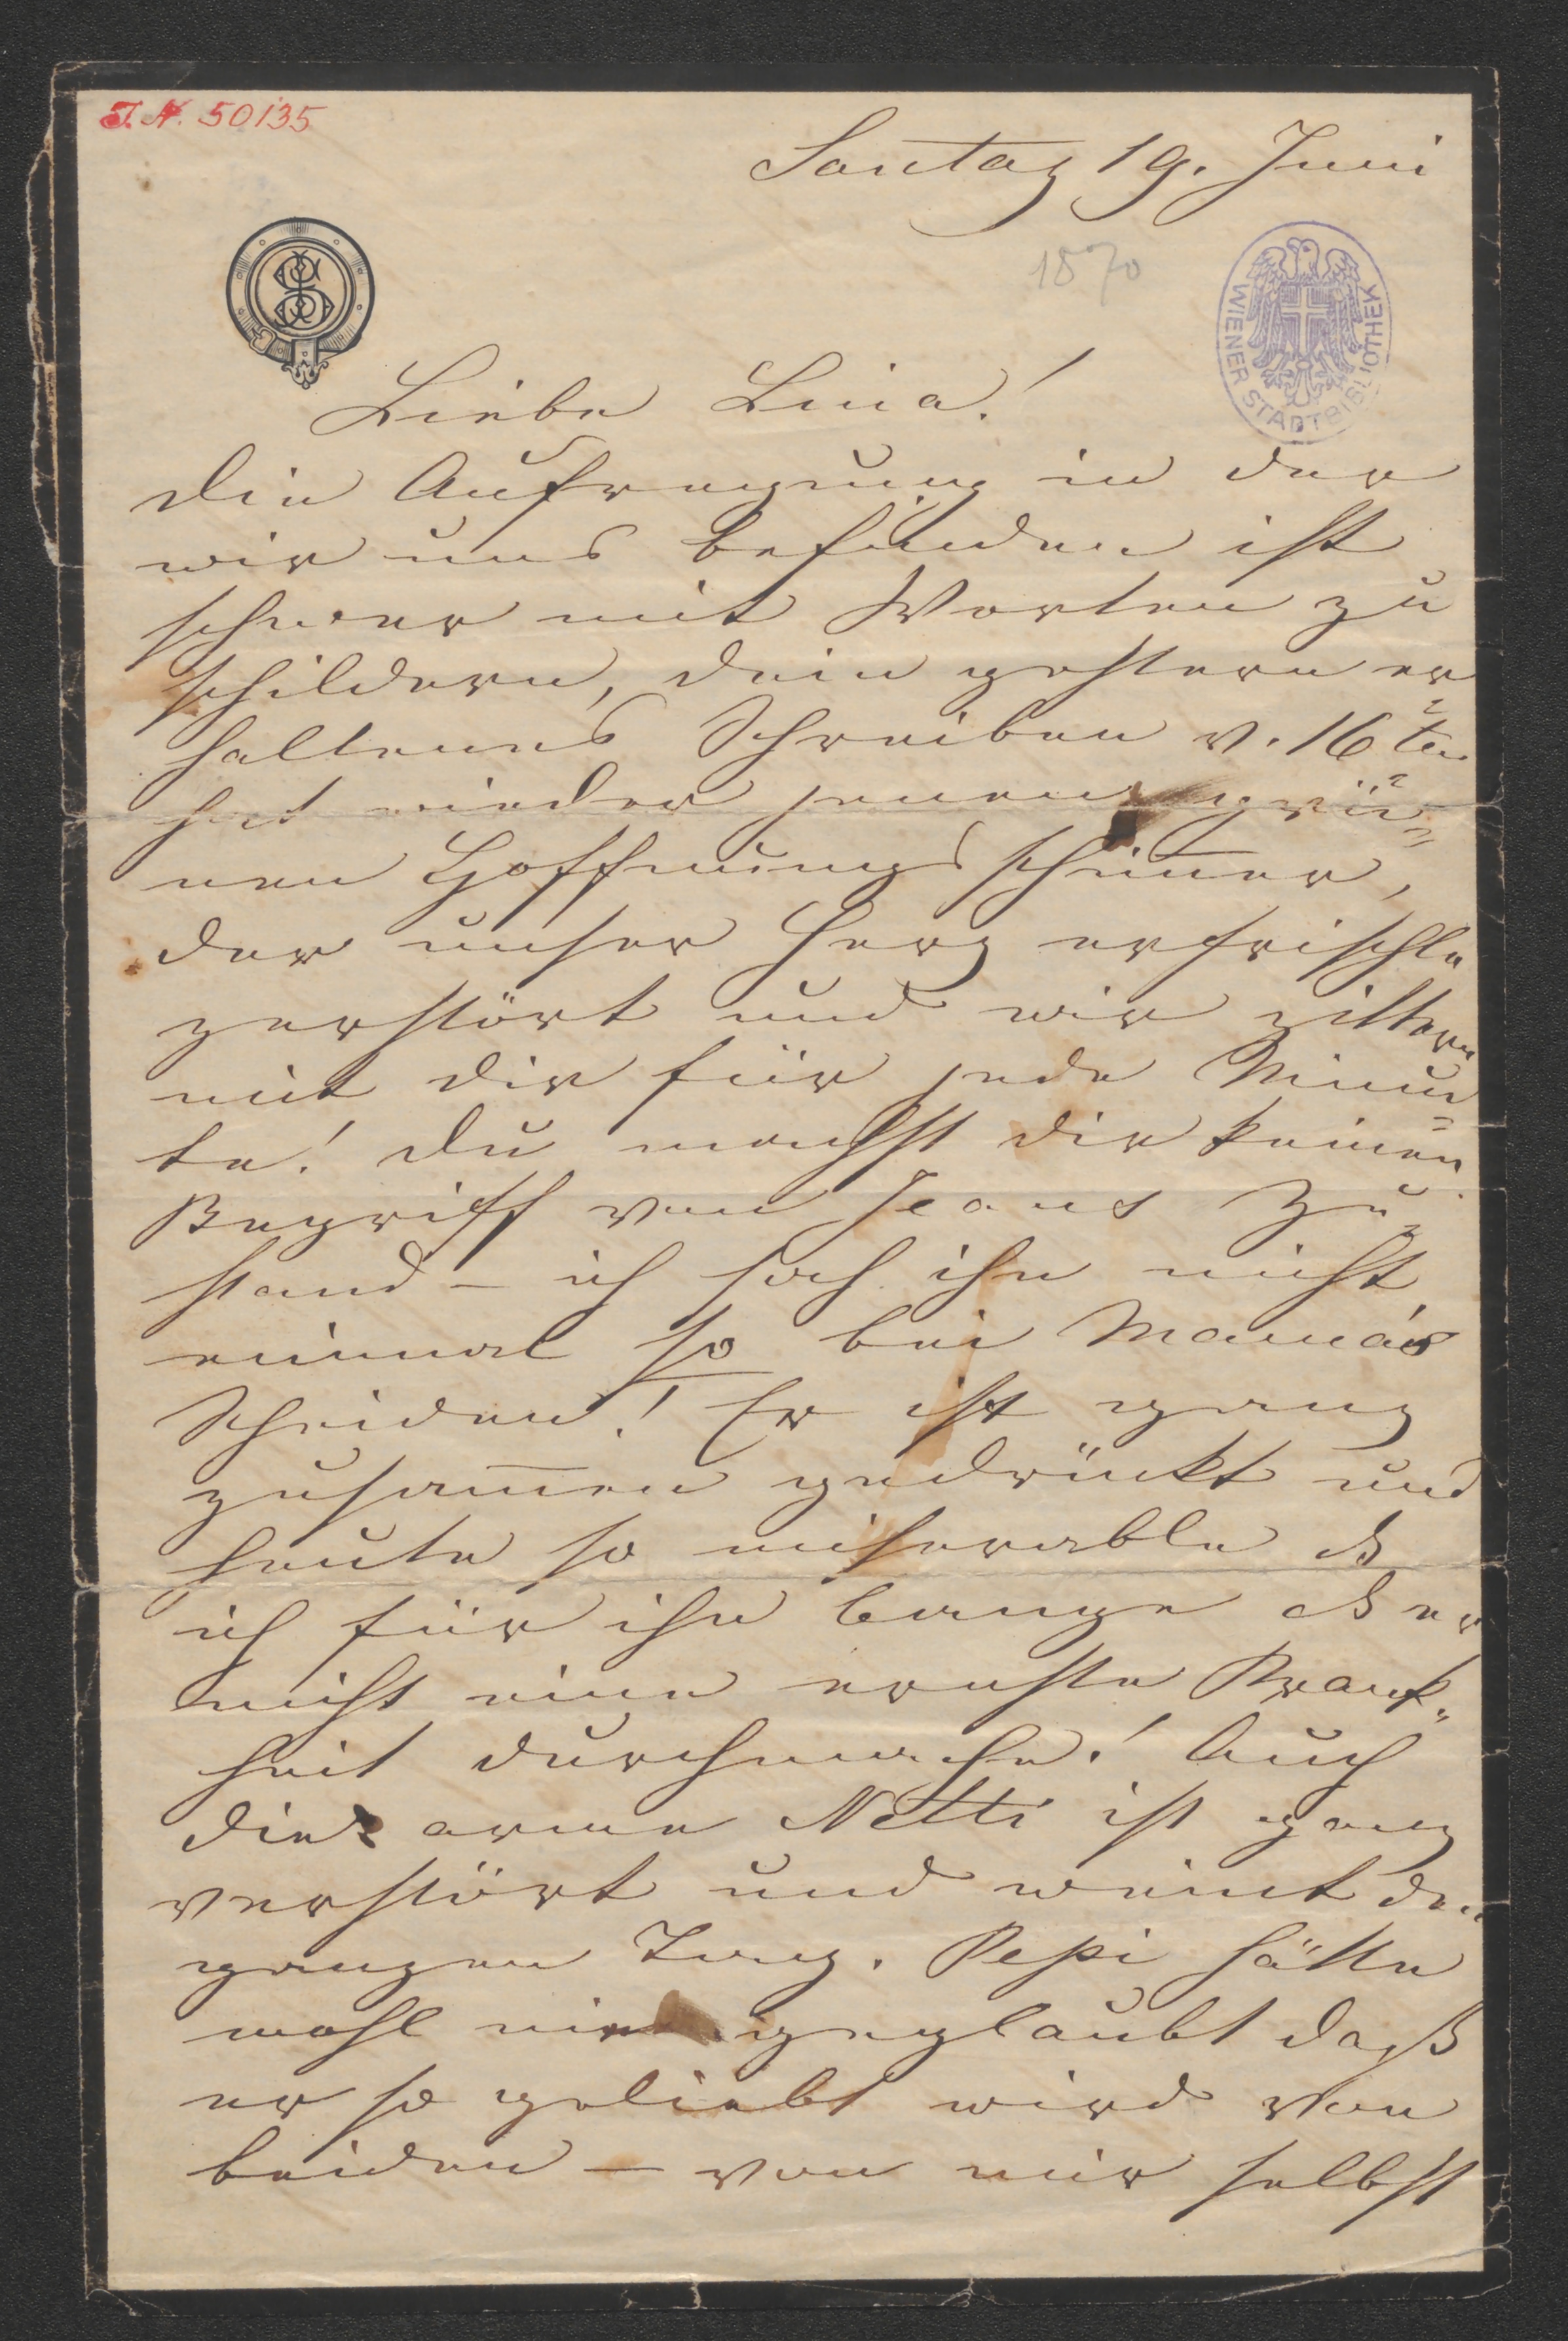 J. N. 50135
Sontag 19. Juni
1870
JS
WIENER STADTBIBLIOTHEK
Liebe Lina!
die Aufregung in der
wir uns befinden ist
schwer mit Worten zu
schildern, dein gestern er
haltenes Schreiben v. 16ten
hat wieder jenen grü„
nen Hoffnungsschim̅er,
der unser Herz erfrischte
zerstört und wir zittern
mit dir für jede Minu„
te! du machst dir keinen
Begriff von Jeans Zu„
stand – ich sah ihn nicht
einmal so bei Mama's
Scheiden! Er ist ganz
zusam̅en gedrückt und
heute so miserable dß
ich für ihn bange dß er
nicht eine ernste Krank„
heit durchmache! Auch
die arme Netti ist ganz
verstört und weint den
ganzen Tag. Pepi hätte
wohl nie geglaubt daß
er so geliebt wird von
beiden – von mir selbst